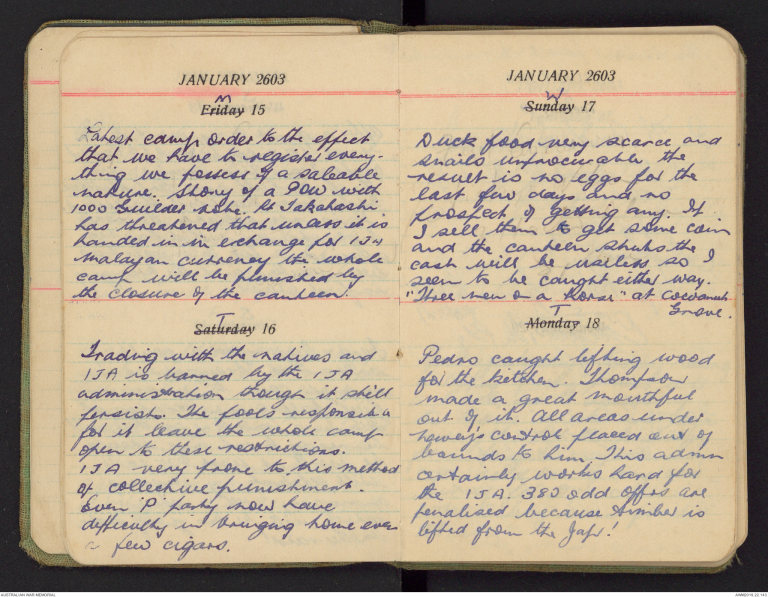 JANUARY 2603
M
Friday 15
Latest camp order to the effect
that we have to register every-
thing we possess of a saleable
nature. Story of a POW with
1000 Guilder note. Lt Takahashi
has threatened that unless it is
handed in in exchange for IJA
Malayan currency the whole
camp will be punished by
the closure of the canteen.
T
Saturday 16
Trading with the natives and
IJA is banned by the IJA
administration though it still
persists. The fools responsible
for it leave the whole camp
open to these restrictions.
IJA very prone to this method
of collective punishment.
Even P party now have
difficulty in bringing home even
a few cigars.
JANUARY 2603
W
Sunday 17
Duck food very scarce and
snails unprocurable the
result is no eggs for the
last few days and no
prospect of getting any. If
I sell them to get some coin
and the canteen shuts the
cash will be useless so I
seem to be caught either way.
"Three men on a Horse" at Coconut
Grove.
T
Monday 18
Pedro caught lifting wood
for the kitchen. Thompson
made a great mouthful
out of it. All areas under
control placed out of
bounds to him. This admin
certainly works hard for
the IJA. 380 odd offrs are
penalised because timber is
lifted from the Japs!
AUSTRALIAN WAR MEMORIAL